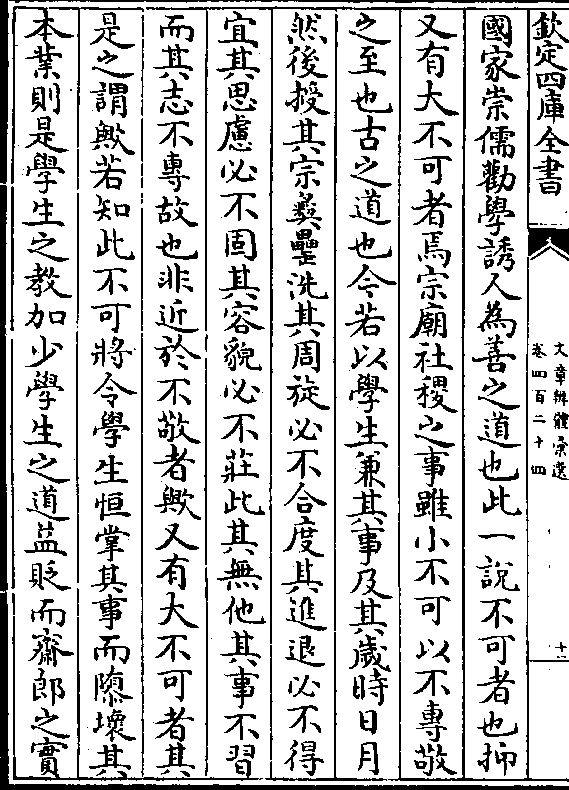 欽定四庫全書
文章辨體彙選
卷四百二十四
十二
國家崇儒勸學誘人為善之道也此一說不可者也抑
又有大不可者焉宗廟社稷之事雖小不可以不專敬
之至也古之道也今若以學生兼其事及其歲時日月
然後授其宗彞罍洗其周旋必不合度其進退必不得
宜其思慮必不固其容貌必不莊此其無他其事不習
而其志不專故也非近於不敬者歟又有大不可者其
是之謂歟若知此不可將令學生恒掌其事而隳壞其
本業則是學生之教加少學生之道益貶而齋郎之實